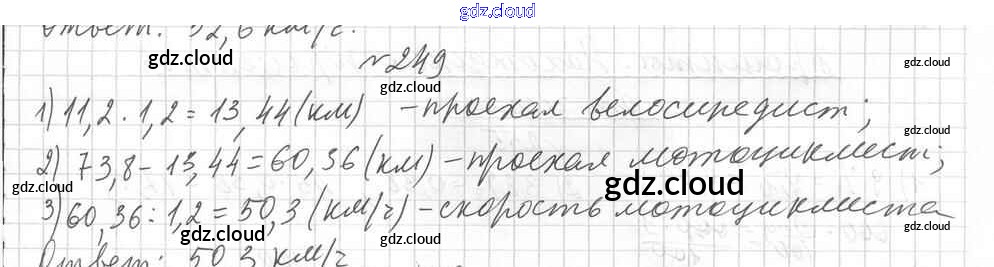 gdz.cloud
Ответ: 52,6 км/с.
gdz.cloud
№249
gdz.cloud
gdz.cloud
1) 11,2 · 1,2 = 13,44 (км) - проехал велосипедист;
gdz.cloud
gdz.cloud
2) 73,8 - 13,44 = 60,36 (км) - проехал мотоциклист;
gdz.cloud
gdz.cloud
gdz.cloud
3) 60,36 : 1,2 = 50,3 (км/ч) - скорость мотоциклиста
gdz.cloud
gdz.cloud
Ответ: 50,3 км/ч
gdz.cloud